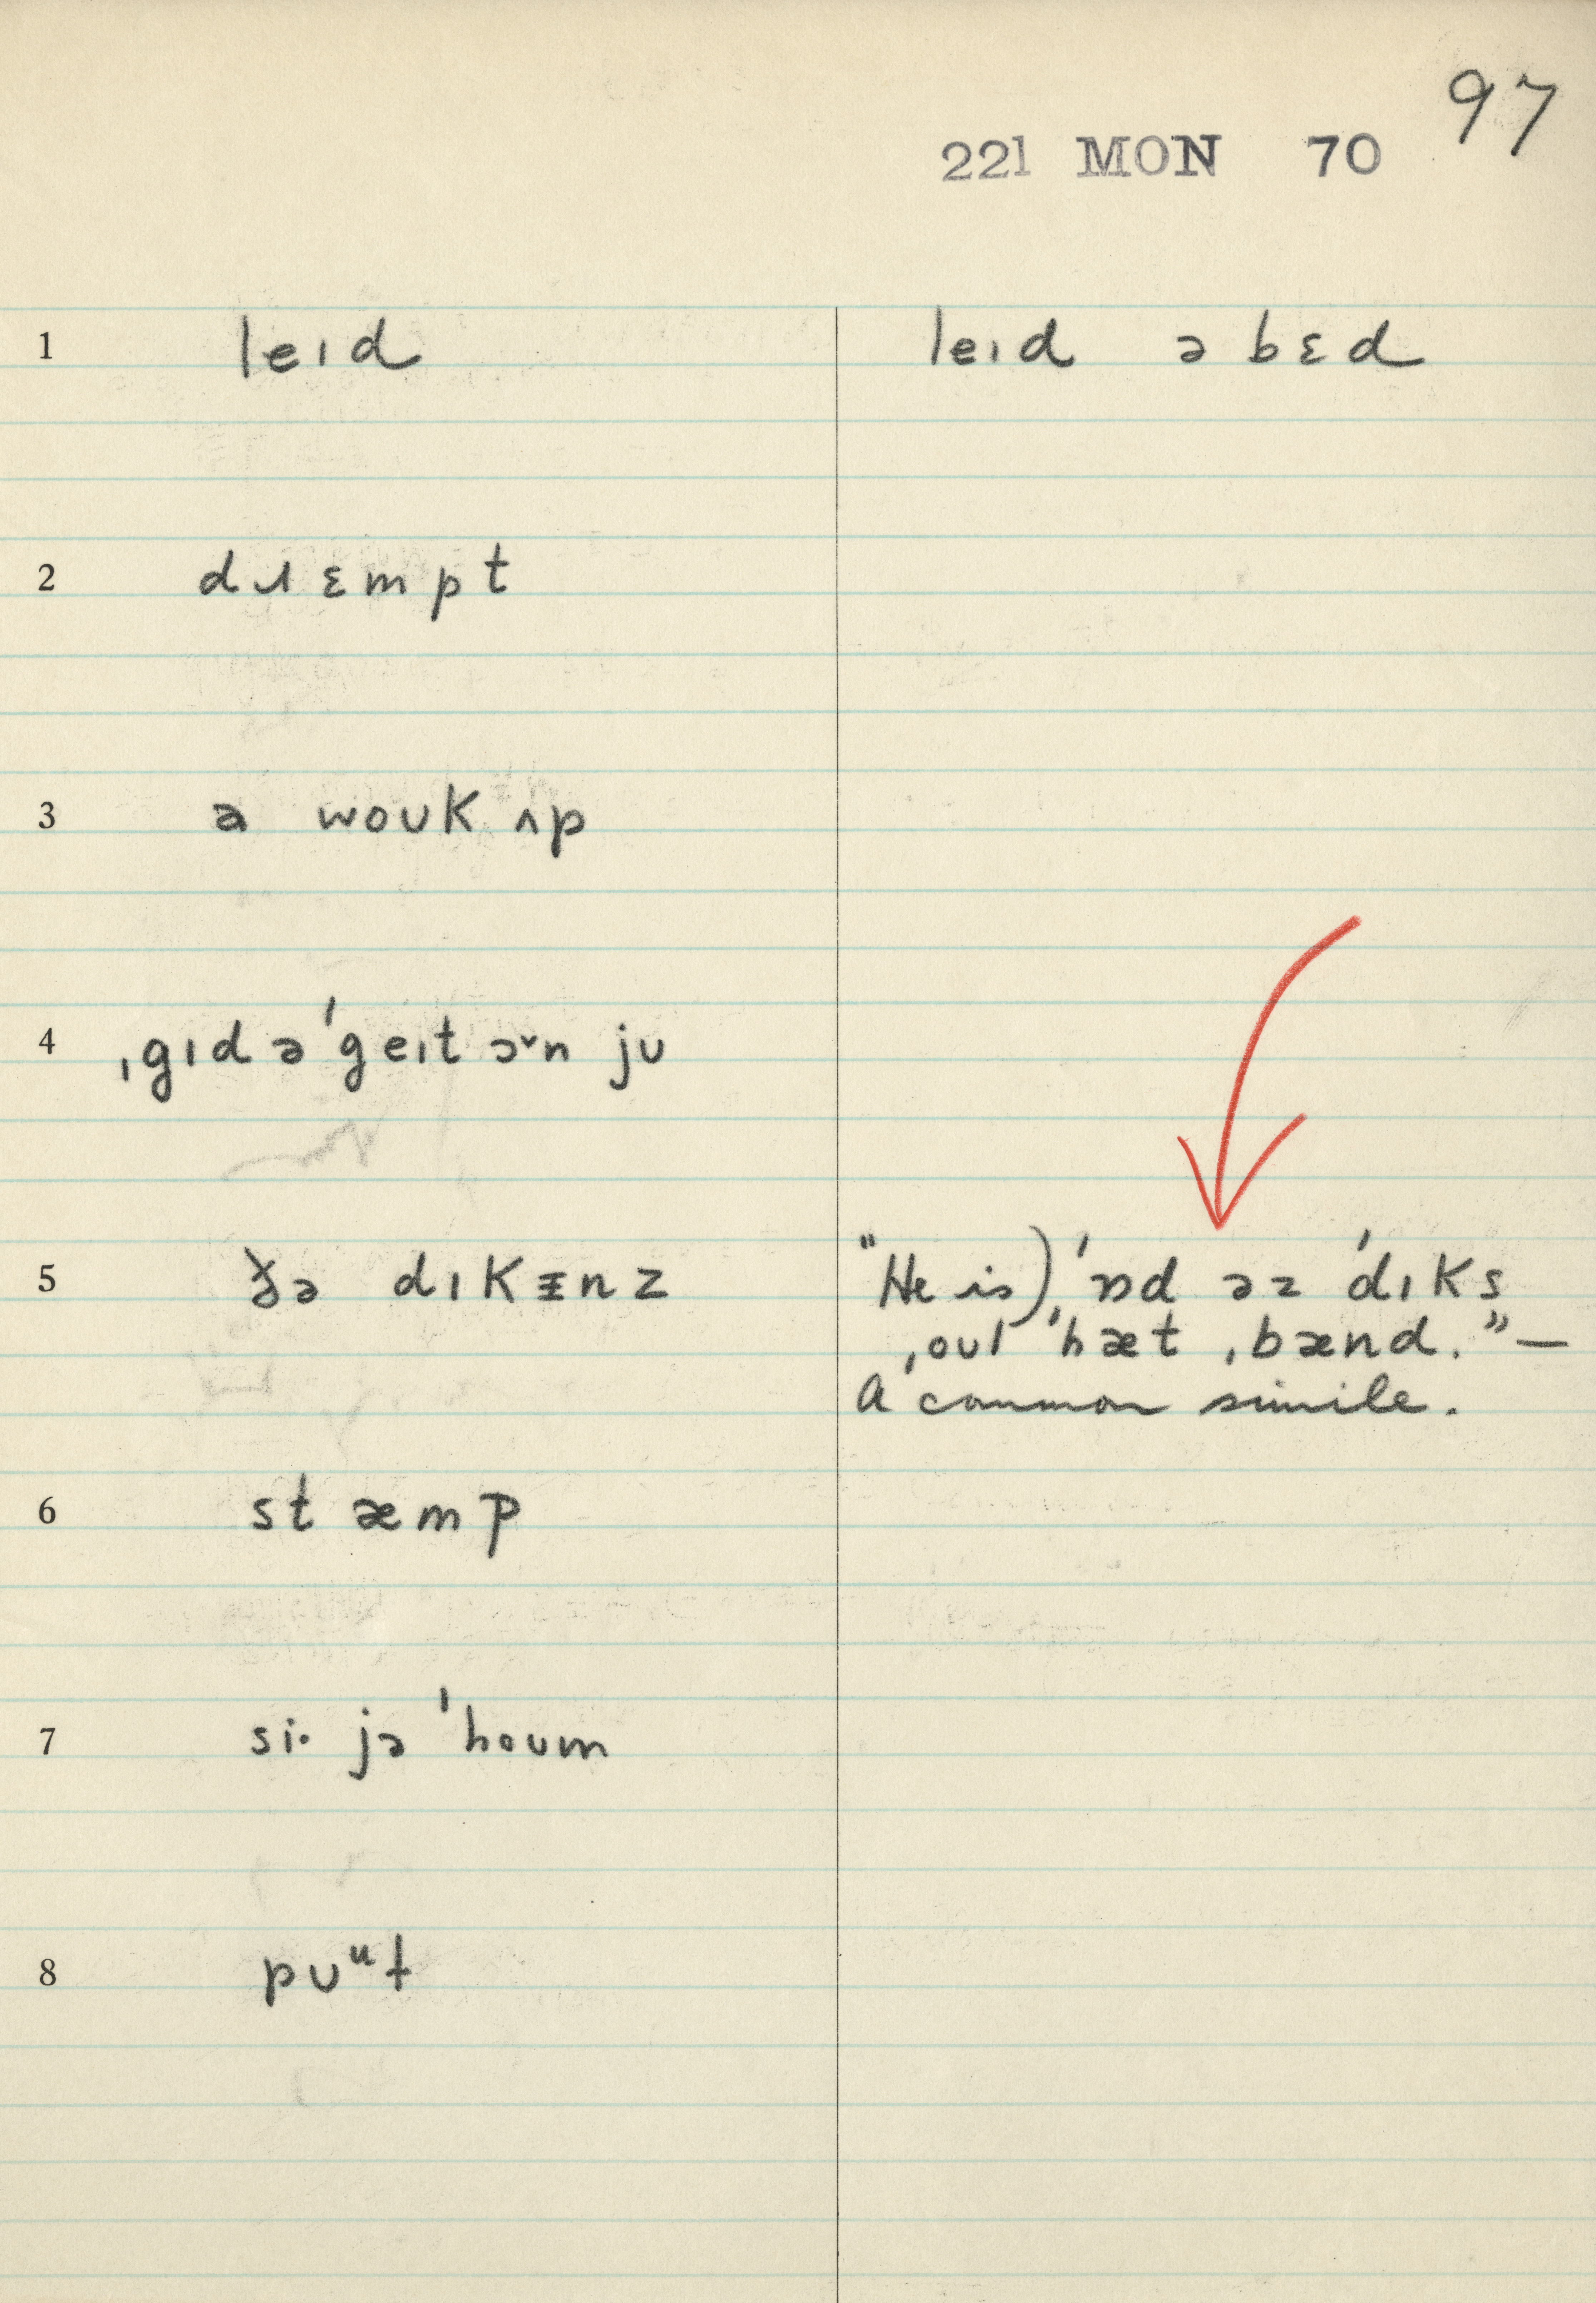 97
221 MON 70
1 leɪd leɪd ə bɛd
2 dɹɛmpt
3 ə woʊk ʌp
4 ˌgɪd ə ˈgeɪt ɔ˅n jʊ
5 ðə dɪkɪ̵nz "He is) ˈɒd əz ˈdɪks
ˌoʊl ˈhæt ˌbænd." —
A common simile.
6 stæmp
7 si· jə ˈhoʊm
8 pʊᵘt